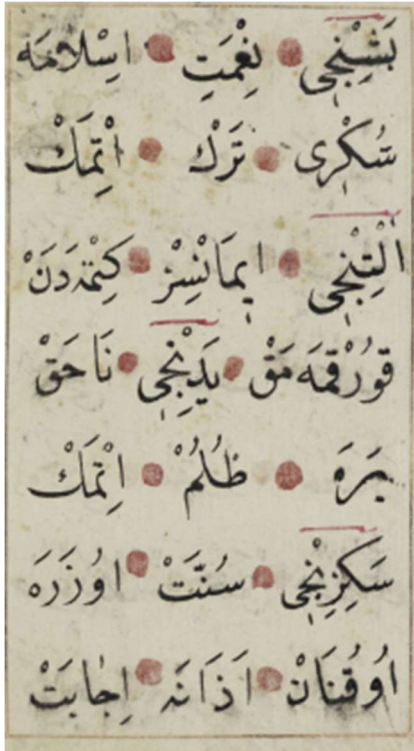 بَشِنْجِى نِعْمَتِ اِسْلَامَه
شُكْرِى تَرْك اِتْمَكْ
اَلْتِنْجِى اِيمَانْسِزْ كِتْمَدَنْ
قُورْقْمَه مَقْ يَدِنْجِى نَا حَقْ
يَرَه ظُلُمْ اِتْمَكْ
سَكِزِنْجِى سُنَّتْ اُوزَرَه
اُوقُنَانْ اَذَانَه اِجَابَتْ